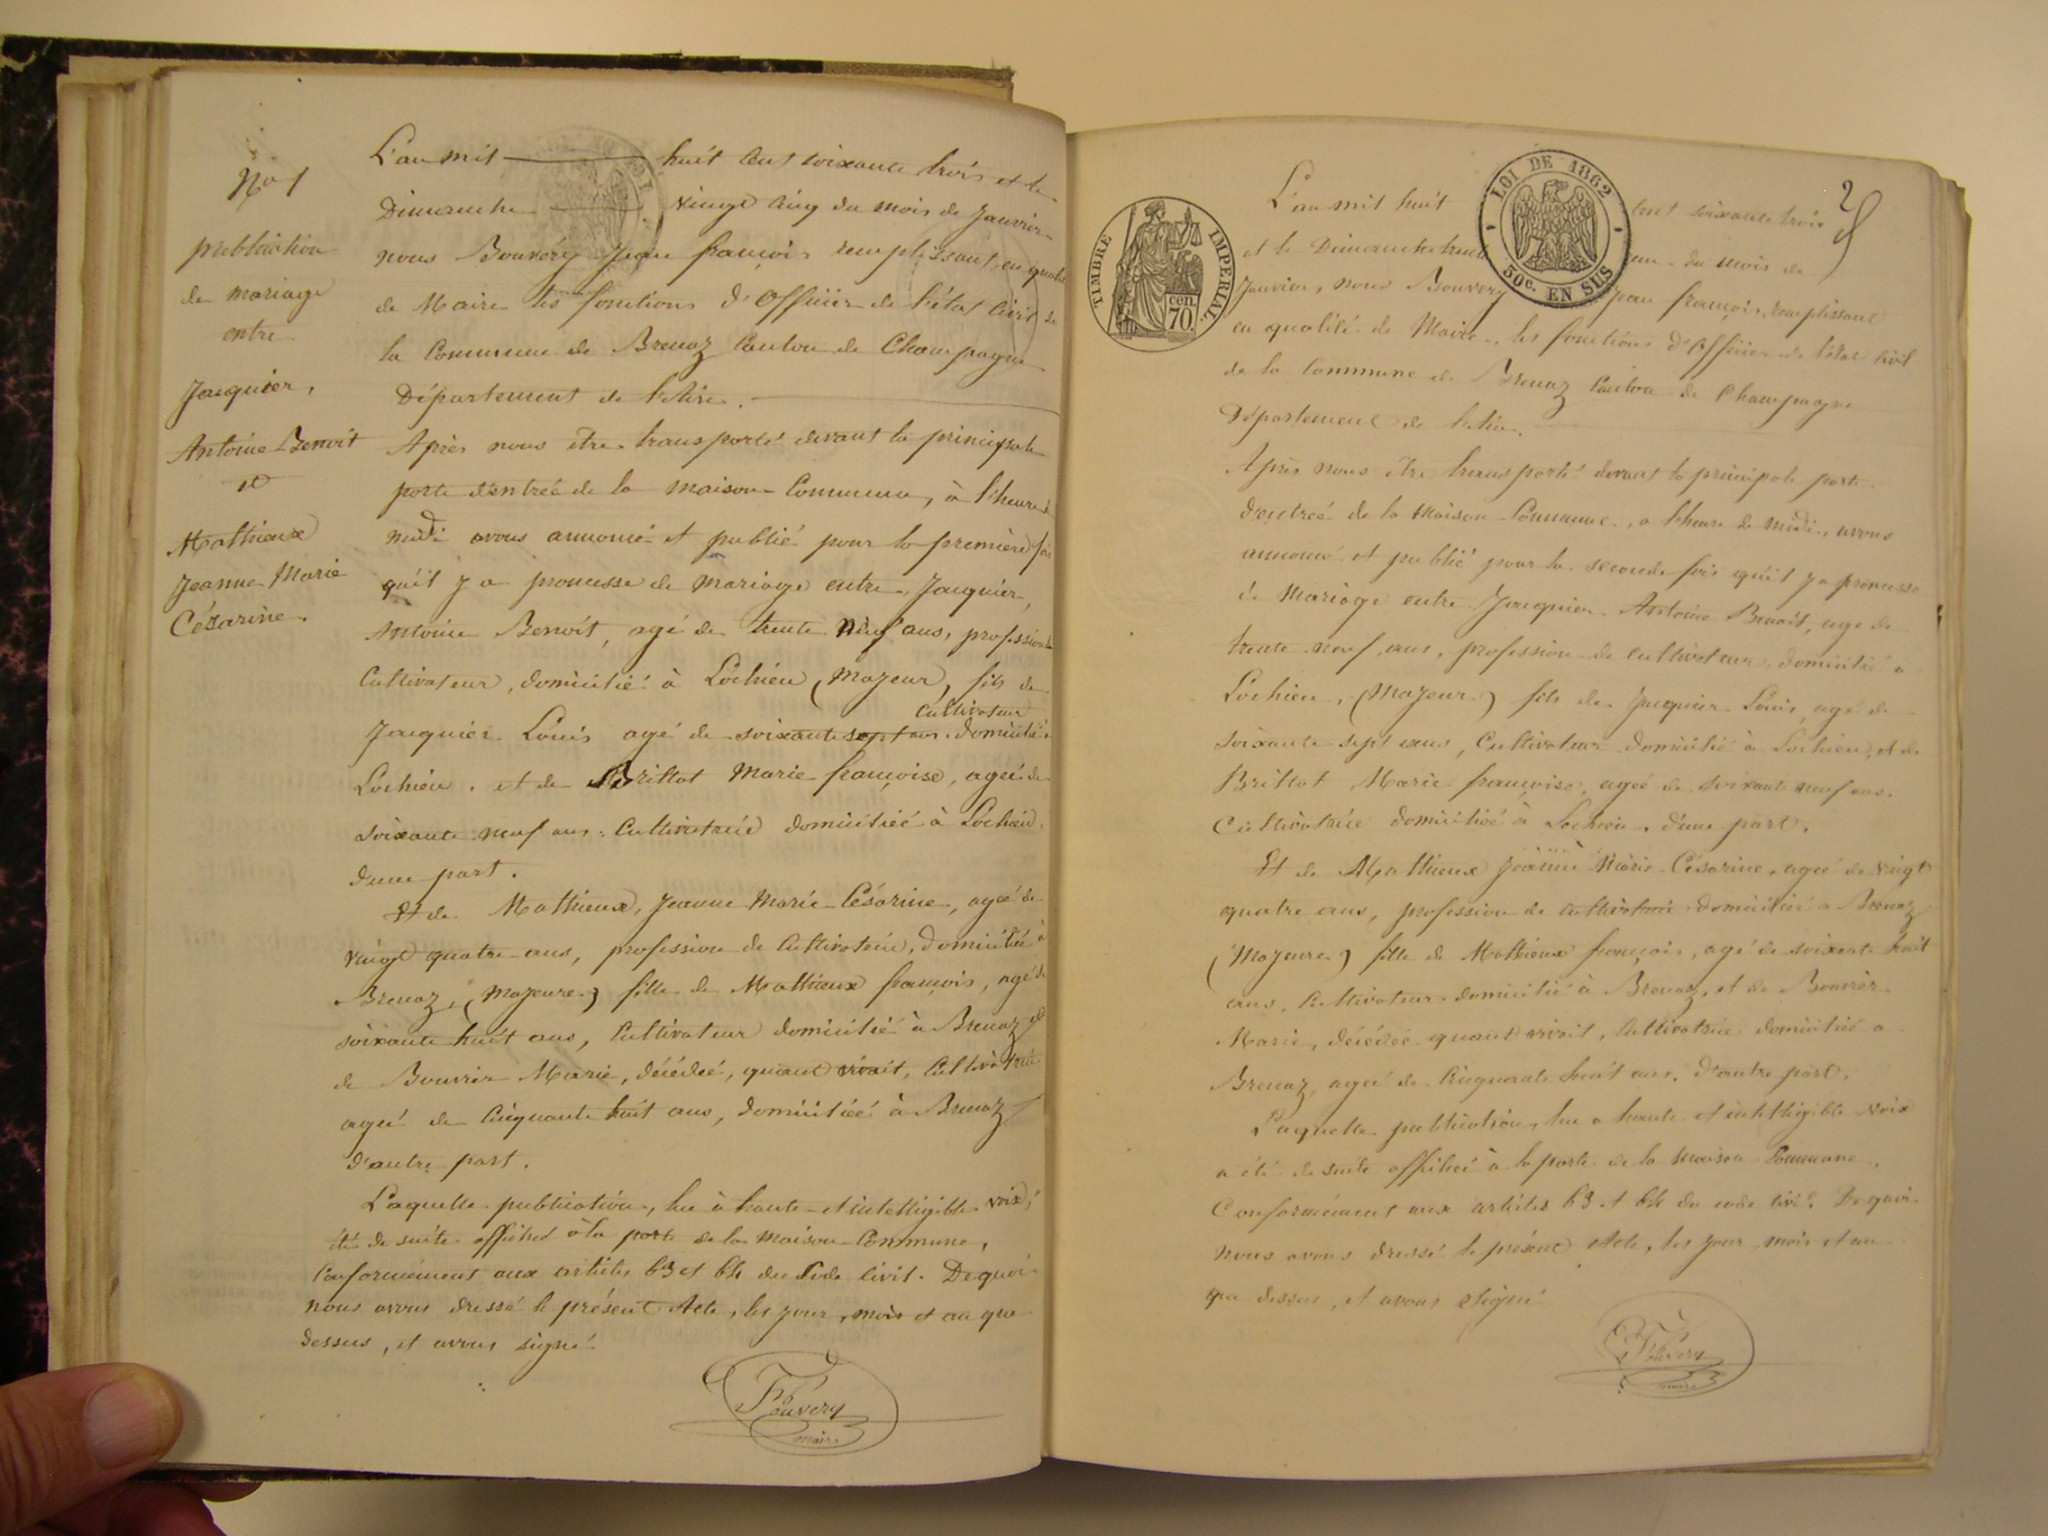 No 1
publication
de mariage
entre
Jacquier,
Antoine Benoit
et
Mathieux
Jeanne Marie
Césarine.
L'an mil huit cent soixante trois et le
Dimanche vingt cinq du mois de Janvier
nous Bouvery Jean françois remplissant en qualité
de Maire les fonctions d'officier de l'état civil de
la Commune de Brenaz Canton de Champagne
Département de l'Ain.
Après nous être transporté devant la principale
porte d'entrée de la maison Commune, à l'heure de
midi avons annoncé et publié pour la première fois
qu'il y a promesse de mariage entre Jacquier,
Antoine Benoit, agé de trente neuf ans, profession de
Cultivateur, domicilié à Lochieu (Majeur) fils de
cultivateur
Jacquier Louis agé de soixante sept ans domicilié à
Lochieu. et de Brillat Marie françoise, agée de
soixante neuf ans. Cultivatrice domiciliée à Lochieu.
d'une part.
Et de Mathieux, Jeanne Marie Césarine, agée de
vingt quatre ans, profession de Cultivatrice, domiciliée à
Brenaz, (Majeure) fille de Mathieux françois, agé de
soixante huit ans, Cultivateur domicilié à Brenaz et
de Bouvier Marie, décédée, quant vivait, Cultivatrice
agée de Cinquante huit ans, domiciliée à Brenaz
d'autre part.
Laquelle publication, lue à haute et intelligible voix,
été de suite affiché à la porte de la maison Commune,
Conformément aux articles 63 et 64 du Code Civil. De quoi
nous avons dressé le présent Acte, les jour, mois et an que
dessus, et avons signé.
Bouvery
maire
2
TIMBRE IMPERIAL
cen.
70.
LOI DE 1862
50c. EN SUS
L'an mil huit cent soixante trois
et le Dimanche trente un du mois de
Janvier, nous Bouvery Jean françois, remplissant
en qualité de Maire, les fonctions d'officier de l'état civil
de la Commune de Brenaz Canton de Champagne
Département de l'Ain.
Après nous être transporté devant la principale porte
d'entrée de la Maison Commune, a l'heure de midi, avons
annoncé et publié pour la seconde fois qu'il y a promesse
de Mariage entre Jacquier Antoine Benoit, age de
trente neuf ans, profession de cultivateur, domicilié a
Lochieu, (Majeur) fils de Jacquier Louis, agé de
soixante sept ans, Cultivateur domicilié à Lochieu, et de
Brillat Marie françoise, agée de soixante neuf ans.
Cultivatrice domiciliée à Lochieu. d'une part.
Et de Mathieux Jeanne Marie Césarine, agée de vingt
quatre ans, profession de cultivatrice domiciliée a Brenaz
(Majeure) fille de Mathieux françois, agé de soixante huit
ans, Cultivateur domicilié à Brenaz, et de Bouvier
Marie, décédée quant vivait, Cultivatrice domiciliée a
Brenaz, agée de Cinquante huit ans. D'autre part.
Laquelle publication, lue a haute et intelligible voix
a été de suite affichée à la porte de la maison Commune.
Conformément aux articles 63 et 64 du code civil. De quoi
nous avons dressé le présent Acte, les jour, mois et an
que dessus, et avons signé
Bouvery
maire